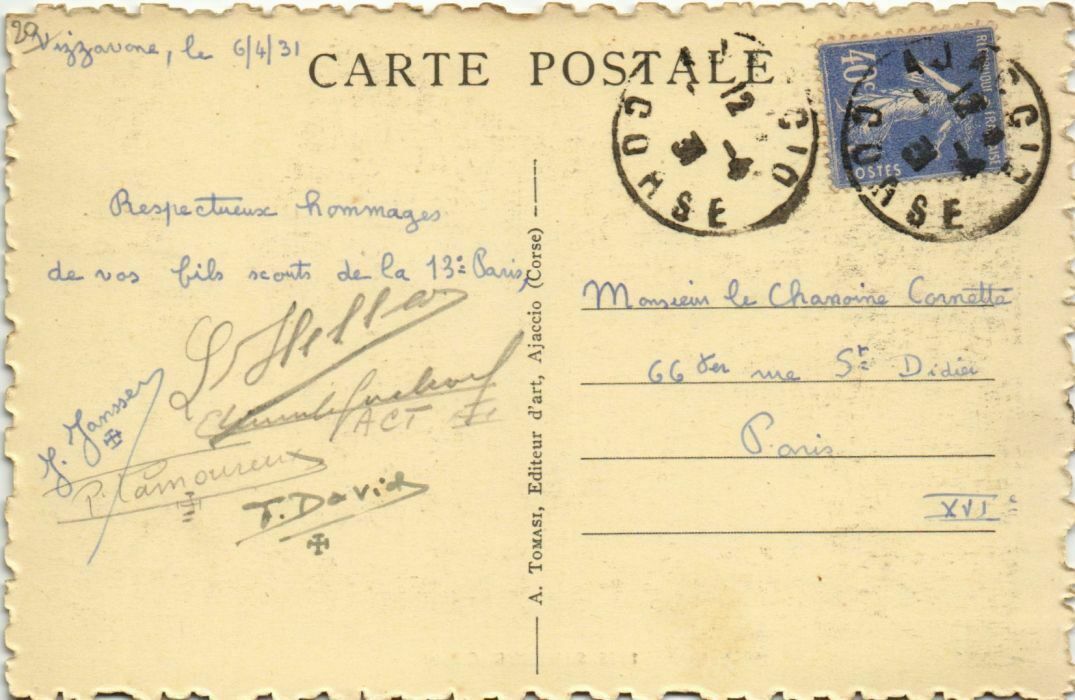 29
Vizzavone, le 6/4/31
CARTE POSTALE
AJACCIO
CORSE
12
31
40c
POSTES
AJACCIO
CORSE
12
31
Respectueux hommages
de vos fils scouts de la 13e Paris
J. Janssen
ACT
P. Lamoureux
T. David
A. TOMASI, Editeur d'art, Ajaccio (Corse)
Monsieur le Chanoine Cornette
66 ter rue St Didier
Paris
XVIe